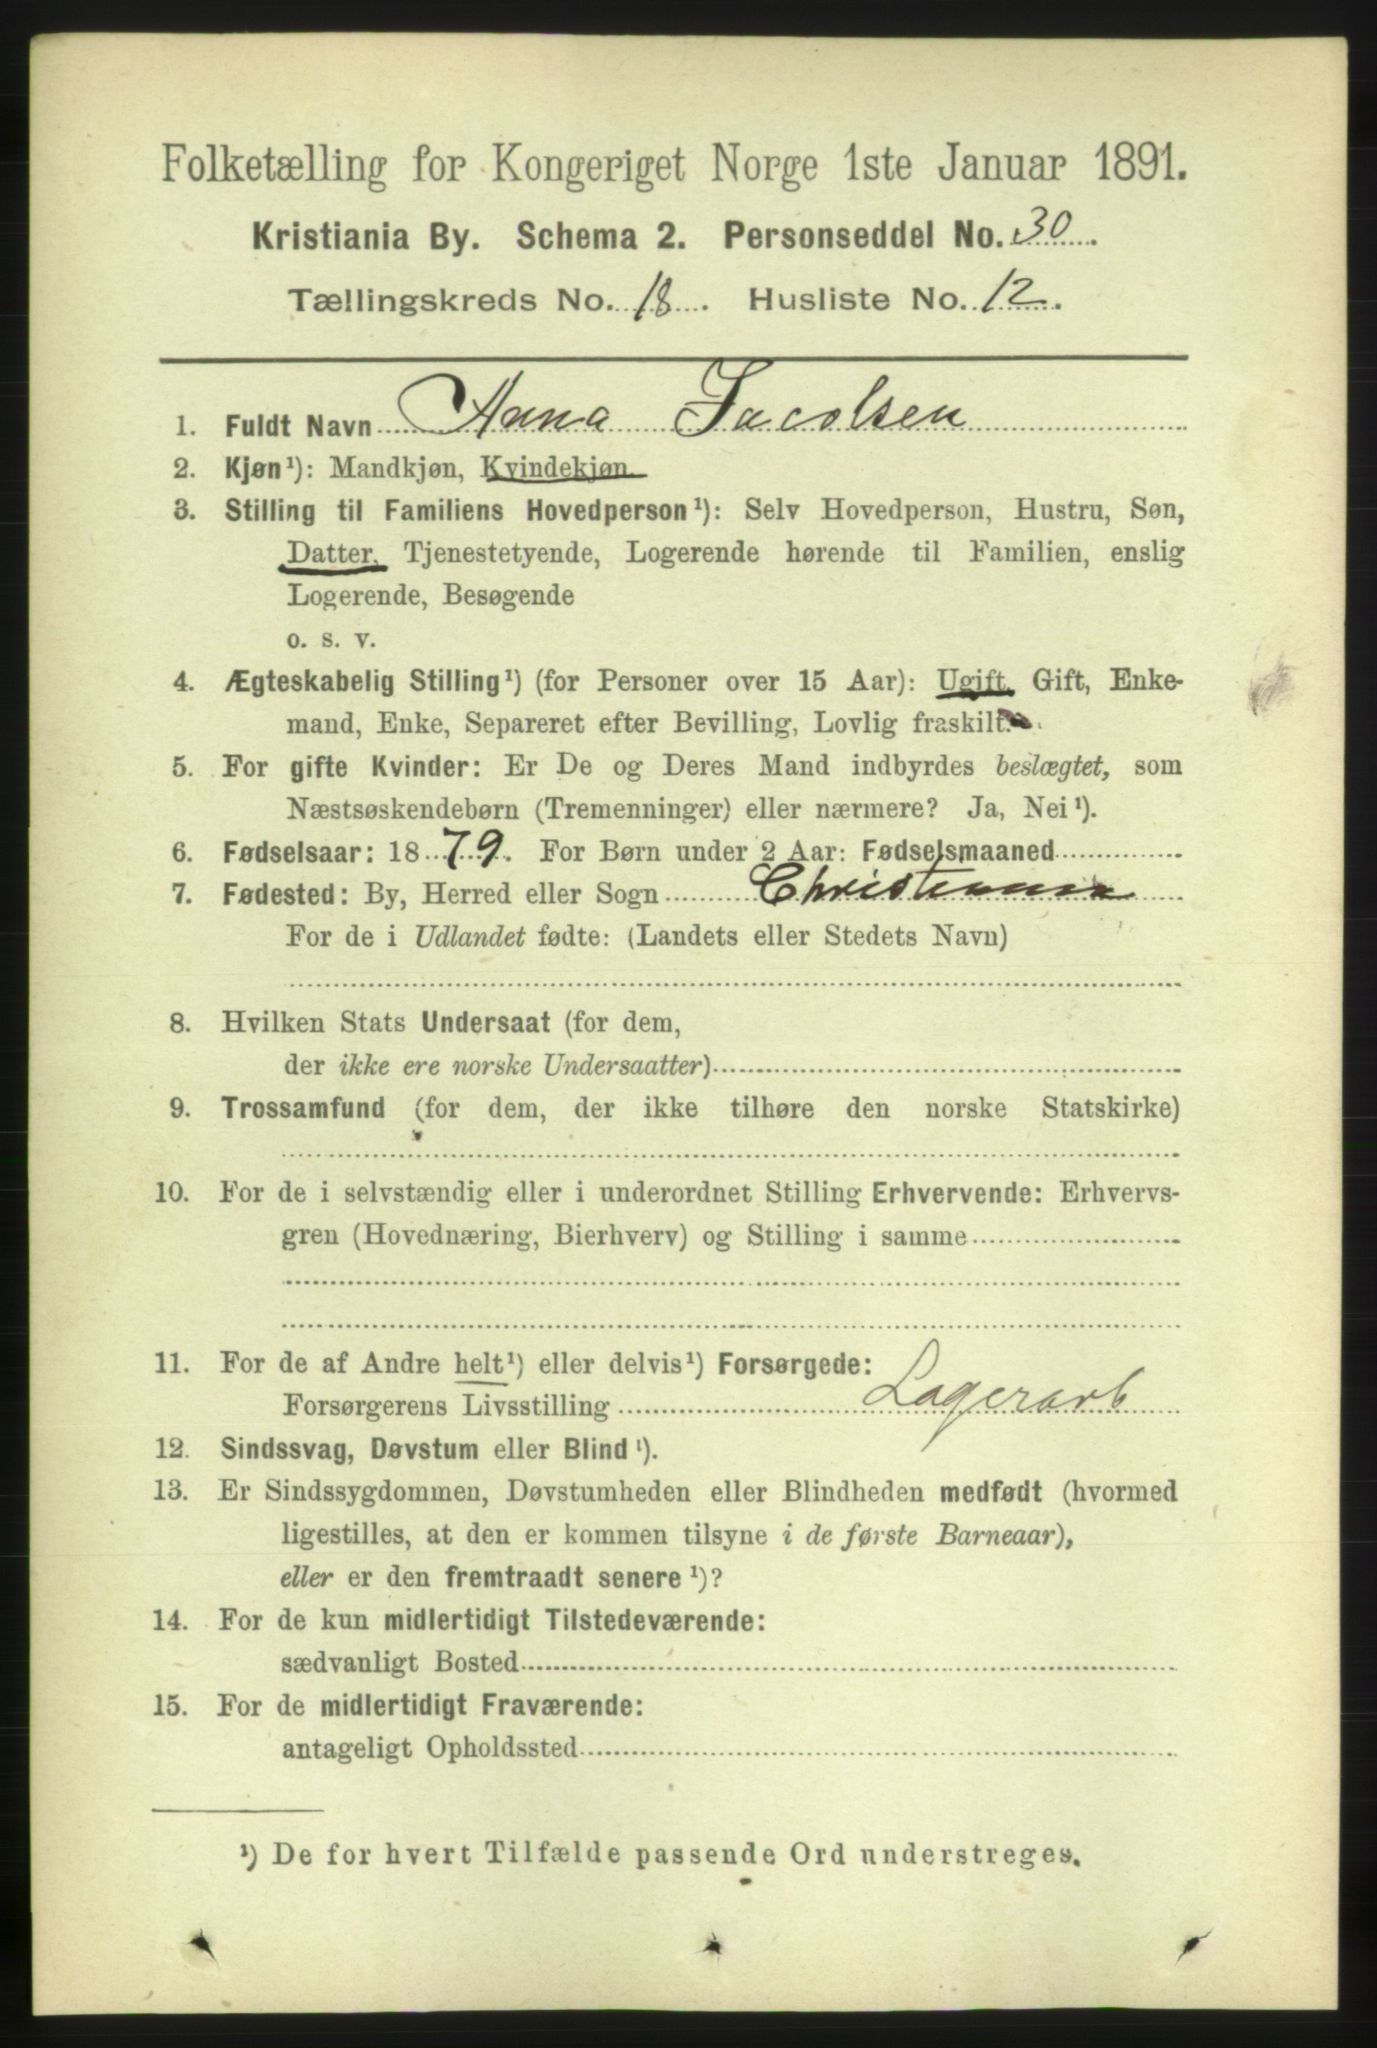 Folketælling for Kongeriget Norge 1ste Januar 1891.
Kristiania By. Schema 2. Personseddel No. 30.
Tællingskreds No. 18. Husliste No. 12.
1. Fuldt Navn Anna Jacobsen
2. Kjøn¹): Mandkjøn, Kvindekjøn.
3. Stilling til Familiens Hovedperson¹): Selv Hovedperson, Hustru, Søn,
Datter, Tjenestetyende, Logerende hørende til Familien, enslig
Logerende, Besøgende
o. s. v.
4. Ægteskabelig Stilling¹) (for Personer over 15 Aar): Ugift, Gift, Enke-
mand, Enke, Separeret efter Bevilling, Lovlig fraskilt.
5. For gifte Kvinder: Er De og Deres Mand indbyrdes beslægtet, som
Næstsøskendebørn (Tremenninger) eller nærmere? Ja, Nei¹).
6. Fødselsaar: 1879. For Børn under 2 Aar: Fødselsmaaned
7. Fødested: By, Herred eller Sogn Christiania
For de i Udlandet fødte: (Landets eller Stedets Navn)
8. Hvilken Stats Undersaat (for dem,
der ikke ere norske Undersaatter)
9. Trossamfund (for dem, der ikke tilhøre den norske Statskirke)
10. For de i selvstændig eller i underordnet Stilling Erhvervende: Erhvervs-
gren (Hovednæring, Bierhverv) og Stilling i samme
11. For de af Andre helt¹) eller delvis¹) Forsørgede:
Forsørgerens Livsstilling Lagerarb
12. Sindssvag, Døvstum eller Blind¹).
13. Er Sindssygdommen, Døvstumheden eller Blindheden medfødt (hvormed
ligestilles, at den er kommen tilsyne i de første Barneaar),
eller er den fremtraadt senere¹)?
14. For de kun midlertidigt Tilstedeværende:
sædvanligt Bosted
15. For de midlertidigt Fraværende:
antageligt Opholdssted
¹) De for hvert Tilfælde passende Ord understreges.